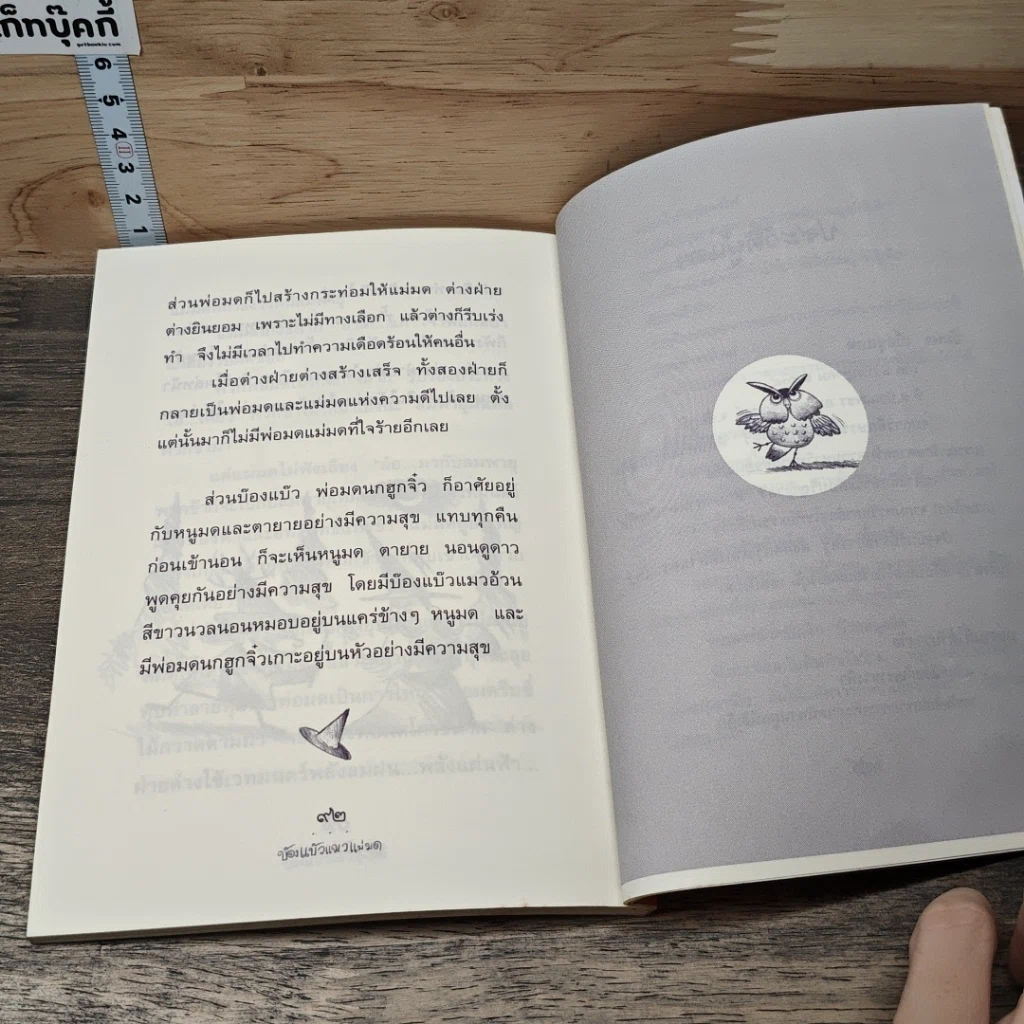 ก็ทบุ๊คกี้
getbookie.com
6
5
4
3
2
1
ส่วนพ่อมดก็ไปสร้างกระท่อมให้แม่มด ต่างฝ่าย
ต่างยินยอม เพราะไม่มีทางเลือก แล้วต่างก็รีบเร่ง
ทำ จึงไม่มีเวลาไปทำความเดือดร้อนให้คนอื่น
เมื่อต่างฝ่ายต่างสร้างเสร็จ ทั้งสองฝ่ายก็
กลายเป็นพ่อมดและแม่มดแห่งความดีไปเลย ตั้ง
แต่นั้นมาก็ไม่มีพ่อมดแม่มดที่ใจร้ายอีกเลย
ส่วนบ๊องแบ๊ว พ่อมดนกฮูกจิ๋ว ก็อาศัยอยู่
กับหนูมดและตายายอย่างมีความสุข แทบทุกคืน
ก่อนเข้านอน ก็จะเห็นหนูมด ตายาย นอนดูดาว
พูดคุยกันอย่างมีความสุข โดยมีบ๊องแบ๊วแมวอ้วน
สีขาวนวลนอนหมอบอยู่บนแคร่ข้างๆ หนูมด และ
มีพ่อมดนกฮูกจิ๋วเกาะอยู่บนหัวอย่างมีความสุข
๙๒
บ๊องแบ๊วแมวแม่มด